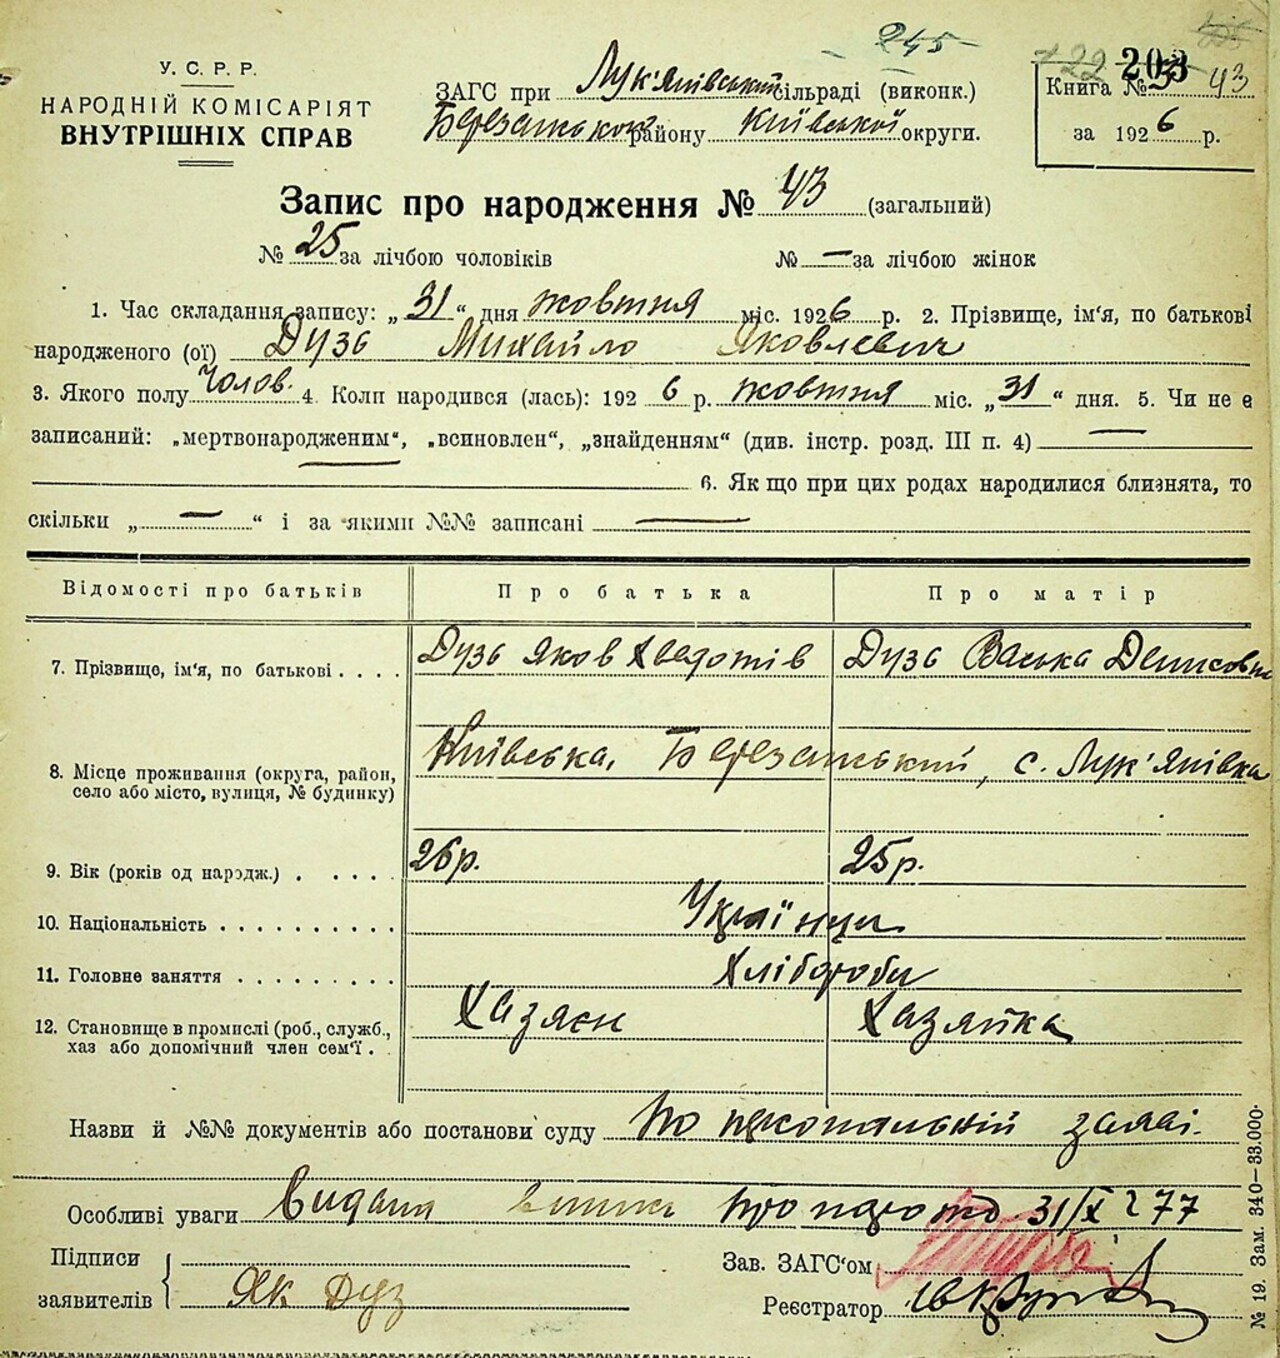 245
У. С. Р. Р.
НАРОДНІЙ КОМІСАРІЯТ
ВНУТРІШНІХ СПРАВ
ЗАГС при Лук'янівський сільраді (виконк.)
Березанського району Київської округи.
203
Книга № 43
за 1926 р.
Запис про народження № 43 (загальний)
№ 25 за лічбою чоловіків № — за лічбою жінок
1. Час складання запису: „31“ дня жовтня міс. 1926 р. 2. Прізвище, ім'я, по батькові
народженого (ої) Дузь Михайло Яковлевич
3. Якого полу Чолов. 4. Коли народився (лась): 1926 р. жовтня міс. „31“ дня. 5. Чи не є
записаний: „мертвонародженим“, „всиновлен“, „знайденням“ (див. інстр. розд. III п. 4) —
— 6. Як що при цих родах народилися близнята, то
скільки „ — “ і за якими №№ записані —
Відомості про батьків Про батька Про матір
7. Прізвище, ім'я, по батькові . . . . Дузь Яков Хведотів Дузь Васька Денисовна
8. Місце проживання (округа, район, село або місто, вулиця, № будинку) Київська, Березанський, с. Лук'янівка
9. Вік (років од народж.) . . . . . 26 р. 25 р.
10. Національність . . . . . . . . . . Українци
11. Головне заняття . . . . . . . . . Хлібороби
12. Становище в промислі (роб., служб., хаз або допомічний член сем'ї . . Хазяєн Хазяйка
Назви й №№ документів або постанови суду По заяві.
Особливі уваги Видана про 31/X 277
Підписи
заявителів Як Дуз
Зав. ЗАГС'ом
Реєстратор
№ 19. Зам. 340—33.000.